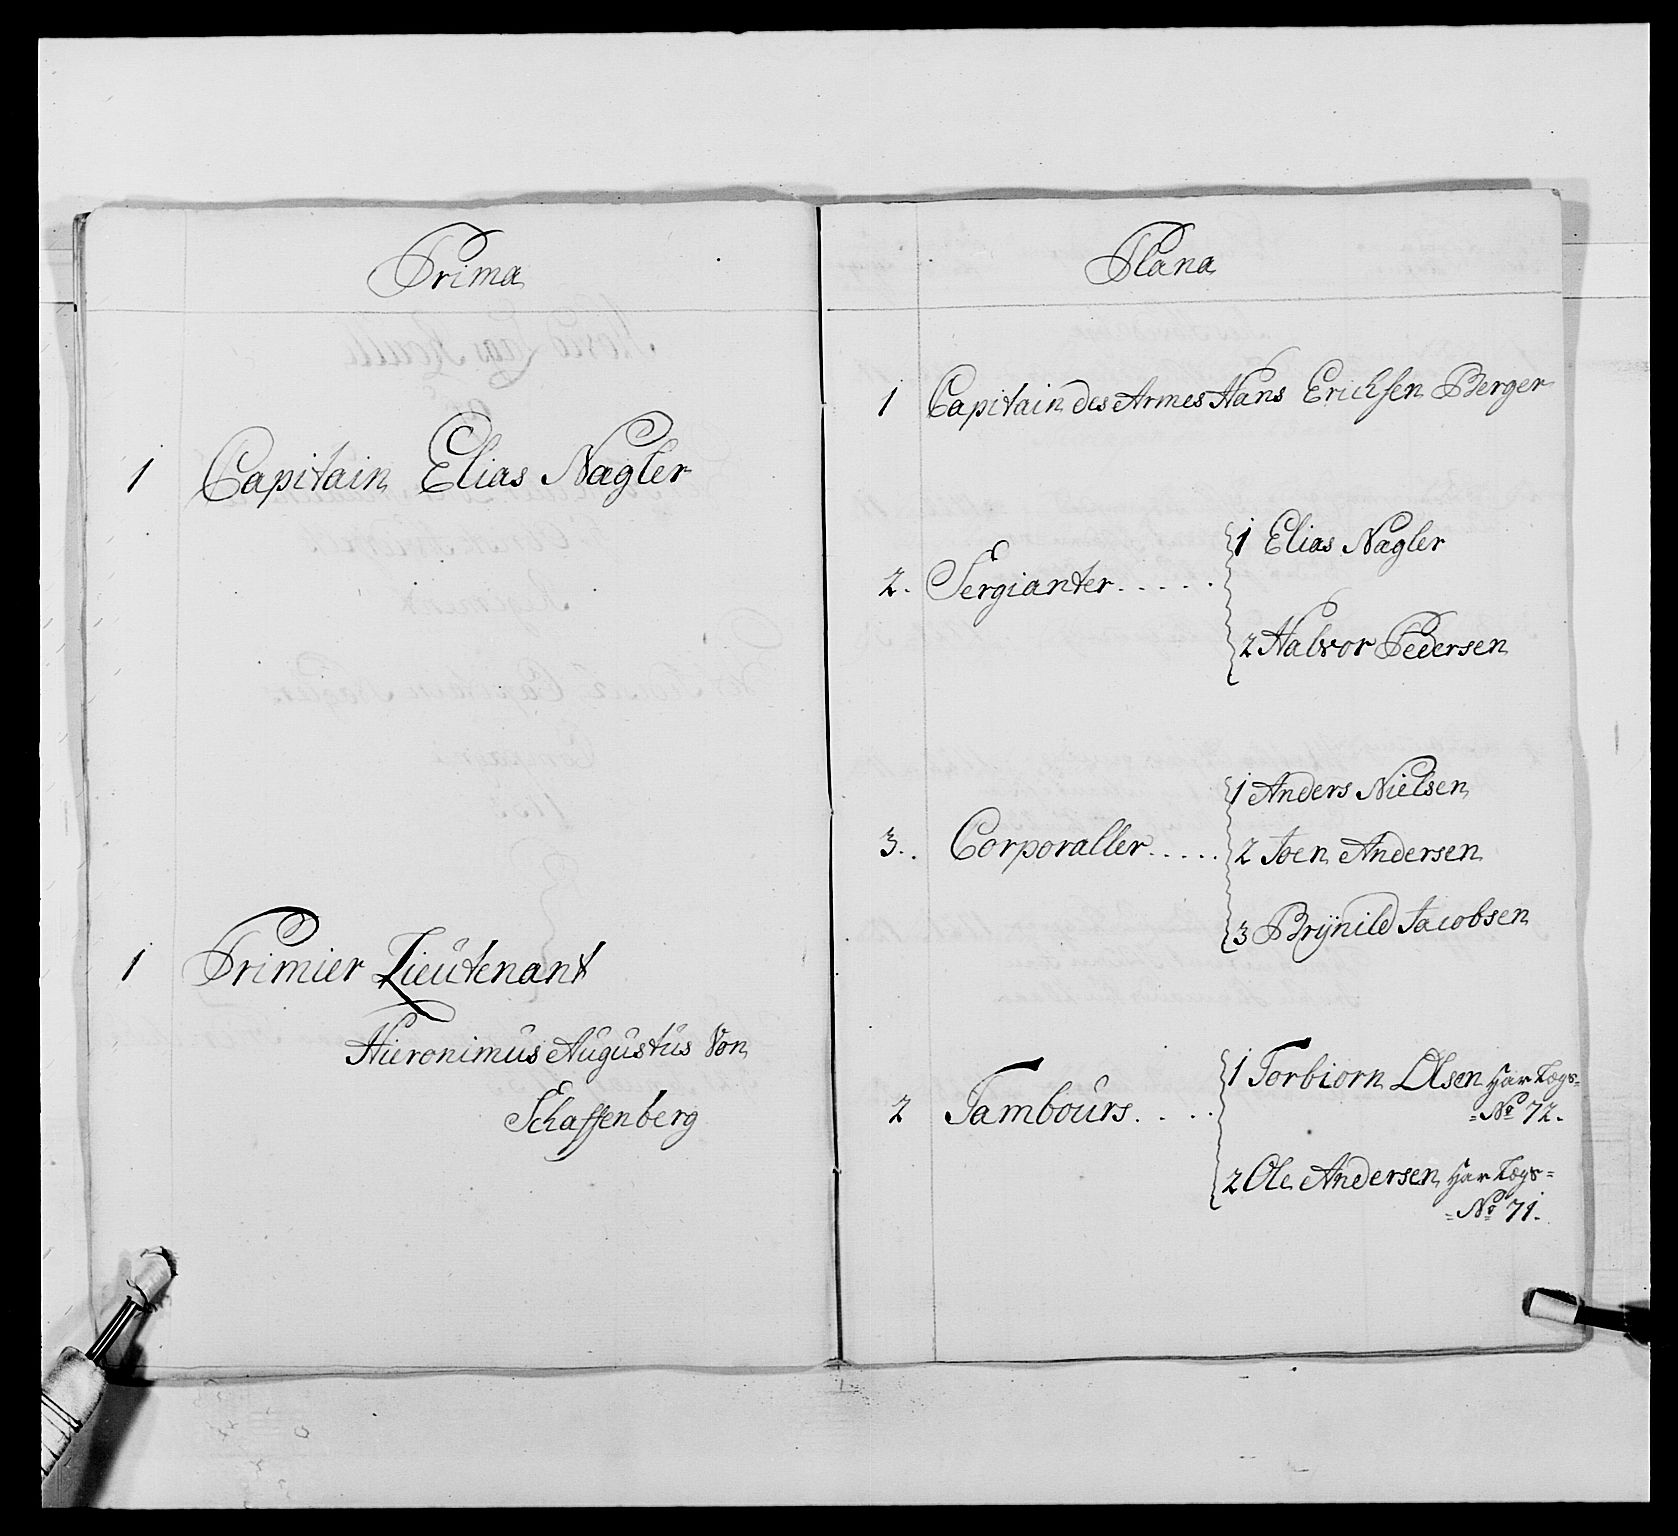 Prima
1 Capitain Elias Nagler
1 Primier Lieutenant
Hieronimus Augustus Von
Schaffenberg
Plana
1 Capitain des Armes Hans Erichsen Berger
2. Sergianter.....
1 Elias Nagler
2 Halvor Pedersen
3.. Corporaller.....
1 Anders Nielsen
2 Joen Andersen
3 Brÿnild Jacobsen
2 Tambours....
1 Torbiorn Olsen har Lægs=
=No 72.
2 Ole Andersen har Lægs=
=No 71.